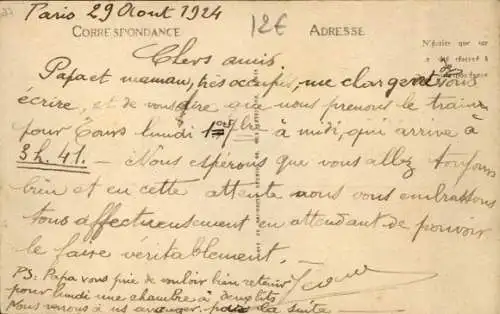 Paris 29 Aout 1924
12€
CORRESPONDANCE
ADRESSE
Chers amis
Papa et maman, très occupés, me chargent de vous
écrire, et de vous dire que nous prenons le train
pour Tours lundi 1er 7bre à midi, qui arrive à
3h.41. — Nous espérons que vous allez toujours
bien et en cette attente nous vous embrassons
tous affectueusement en attendant de pouvoir
le faire véritablement. —
PS: Papa vous prie de vouloir bien retenir
pour lundi une chambre à deux lits
Nous verrons à nous arranger pour la suite —